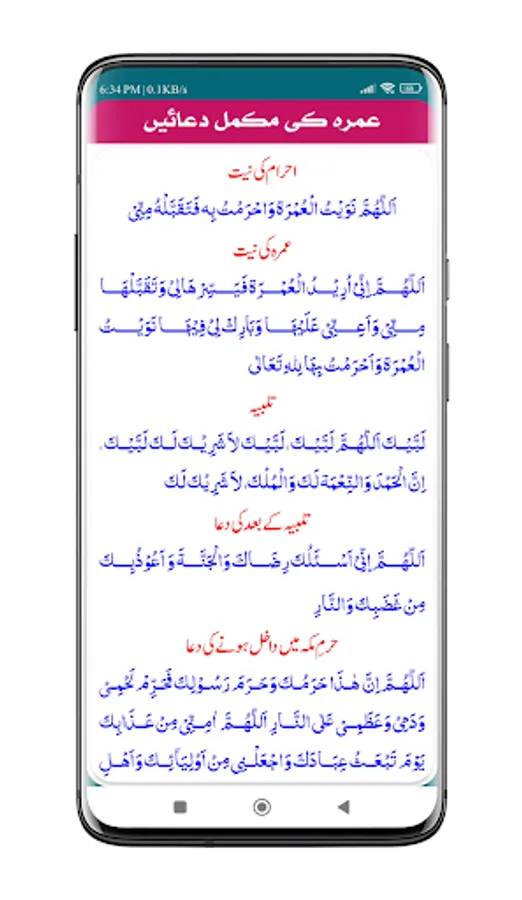 6:34 PM | 0.1KB/s
عمرہ کی مکمل دعائیں
احرام کی نیت
اَللّٰهُمَّ نَوَيْتُ الْعُمْرَةَ وَاحْرَمْتُ بِهٖ فَتَقَبَّلْهُ مِنِّيْ
عمرہ کی نیت
اَللّٰهُمَّ اِنِّيْ اُرِيْدُ الْعُمْرَةَ فَيَسِّرْهَالِيْ وَتَقَبَّلْهَا
مِنِّيْ وَاَعِنِّيْ عَلَيْهَا وَبَارِكْ لِيْ فِيْهَا نَوَيْتُ
الْعُمْرَةَ وَاَحْرَمْتُ بِهَا لِلّٰهِ تَعَالٰى
تلبیہ
لَبَّيْكَ اَللّٰهُمَّ لَبَّيْكَ، لَبَّيْكَ لَا شَرِيْكَ لَكَ لَبَّيْكَ،
اِنَّ الْحَمْدَ وَالنِّعْمَةَ لَكَ وَالْمُلْكَ، لَا شَرِيْكَ لَكَ
تلبیہ کے بعد کی دعا
اَللّٰهُمَّ اِنِّيْ اَسْئَلُكَ رِضَاكَ وَالْجَنَّةَ وَاَعُوْذُبِكَ
مِنْ غَضَبِكَ وَالنَّارِ
حرمِ مکہ میں داخل ہونے کی دعا
اَللّٰهُمَّ اِنَّ هٰذَا حَرَمُكَ وَحَرَمُ رَسُوْلِكَ فَحَرِّمْ لَحْمِيْ
وَدَمِيْ وَعَظْمِيْ عَلَى النَّارِ اَللّٰهُمَّ اٰمِنِّيْ مِنْ عَذَابِكَ
يَوْمَ تَبْعَثُ عِبَادَكَ وَاجْعَلْنِيْ مِنْ اَوْلِيَائِكَ وَاَهْلِ